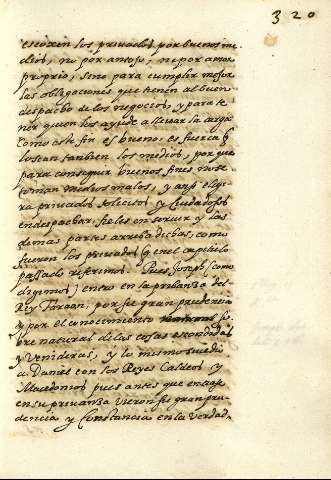 320
escojen los privados por buenos me-
dios, ni por antojo, ni por amor
proprio, sino para cumplir mejor
las obligaciones que tienen al buen
despacho de los negocios, y para te
ner quien los ayude a llevar la carga
como este fin es bueno, es fuerca q
lo sean tanbien los medios, por que
para conseguir buenos fines no se
toman medios malos, y ansi eligi
ra privados solicitos y cuidadosos
en despachar, fieles en servir y las
demas partes arriba dichas, como
fueron los privados (q en el capitulo
passado referimos. Pues Joseph (como
digimos) entro en la privanza del
Rey Faraon, por su gran prudencia
y por el conocimiento so
bre natural de las cosas escondidas
y venideras, y lo mismo sucedio
a Daniel con los Reyes Caldeos y
Macedonios pues antes que entrase
en su privanza vieron su gran pru-
dencia y constancia en la verdad,